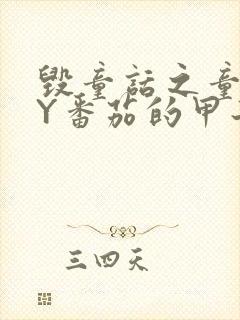 毁童话之童
Y番茄的甲
三四天